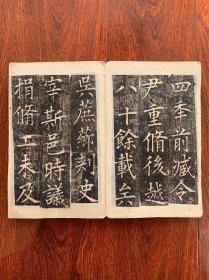 四秊前臧令
尹重脩後越
八十餘載矣
吳蔗薌刺史
宰斯邑時議
捐脩工未及